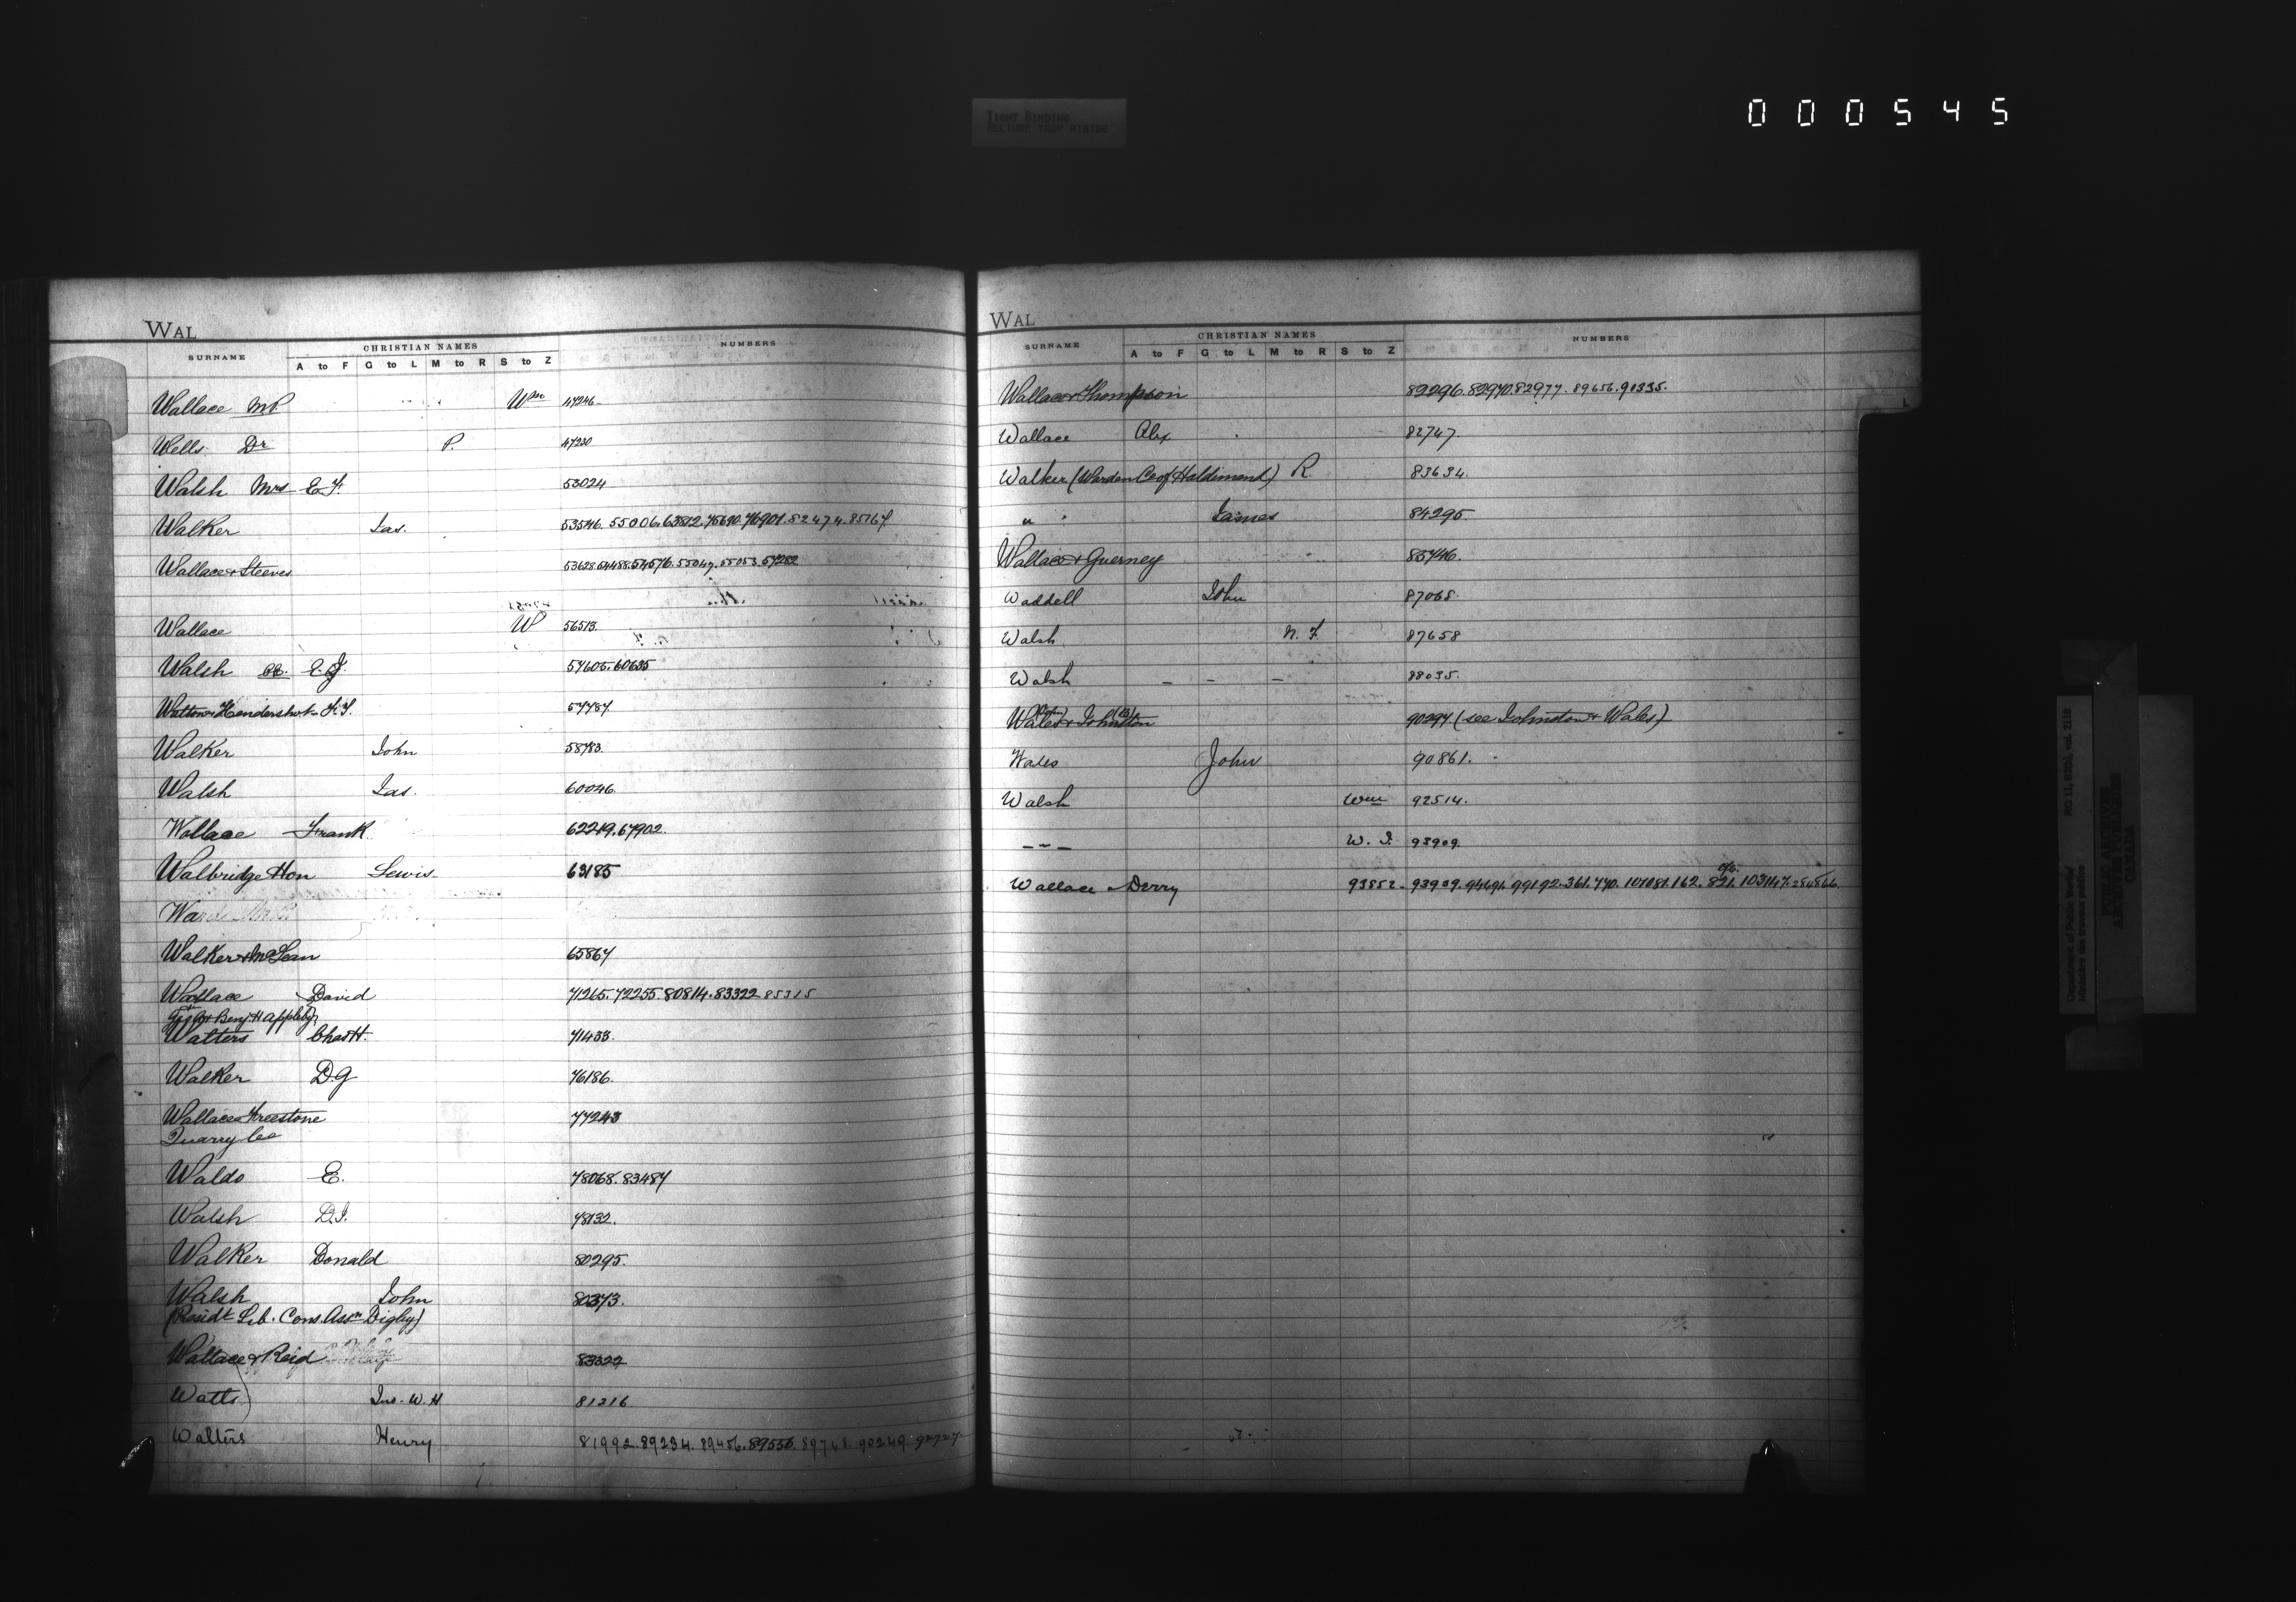 000545
TIGHT BINDING
RELIURE TROP RIGIDE
WAL
SURNAME CHRISTIAN NAMES NUMBERS
A to F G to L M to R S to Z
Wallace MP Wm 47246
Wells Dr P. 47230
Walsh Mrs E.F. 53024
Walker Jas. 53546. 55006. 63812. 75690. 76901. 82474. 85167
Wallace & Steeves 53628. 54488. 54576. 55047. 55053. 57252
Wallace W 56513.
Walsh E.J. 57605. 60635
Hendershot 57787
Walker John 58783.
Walsh Jas. 60046.
Wallace Frank 62249. 67902.
Walbridge Hon Lewis 63185
Walker & McLean 65867
Wallace David 71265. 72255. 80814. 83322 85315
Benj. H Appleby
Watters Chas H. 71433.
Walker D.G 76186.
Wallace Freestone 77243
Quarry Co
Waldo E. 78068. 83487
Walsh D.J. 78132.
Walker Donald 80295.
Walsh John 80373.
(Presidt Lib. Cons. Assn Digby)
Wallace & Reid 83322
Watts Jno. W. H 81216
Walters Henry 81992. 89234. 89456. 89556. 89748. 90249.
WAL
SURNAME CHRISTIAN NAMES NUMBERS
A to F G to L M to R S to Z
Wallace & Thompson 82296. 82970. 82977. 89656. 90335.
Wallace Alex 82747.
Walker (Warden Co of Haldimand) R 83634.
" James 84295
Wallace & Guerney 85746.
Waddell John 87068.
Walsh N. F. 87658
Walsh - - - 88035.
Wales & Johnston 90294 (see Johnston & Wales)
Wales John 90861.
Walsh Wm 92514.
- " - W. J. 93909.
Wallace Derry 93852. 93939. 94691. 99192. 361. 770. 101081. 162. 821. 103147.
Department of Public Works/
Ministère des travaux publics
RG 11, B1(b), vol. 2118
PUBLIC ARCHIVES
ARCHIVES PUBLIQUES
CANADA